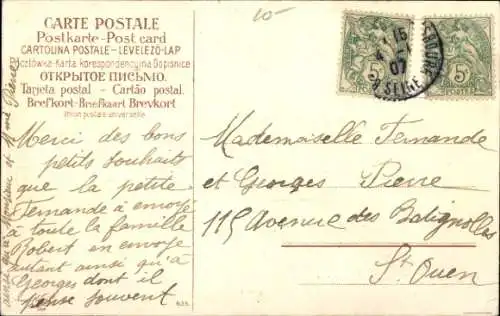 10-
CARTE POSTALE
Postkarte - Post card
CARTOLINA POSTALE - LEVELEZŐ-LAP
Karta korespondencyjna Dopisnice
ОТКРЫТОЕ ПИСЬМО.
Tarjeta postal - Cartão postal.
Brefkort - Briefkaart Brevkort
Union postale universelle
1 15
4 - 1
07
SEINE
5c
POSTES
5c
POSTES
Merci des bons
petits souhaits
que la petite
Fernande à envoyé
à toute la famille
Robert en envoye
autant ainsi qu'à
Georges dont il
pense souvent
ainsi qu'à Monsieur et Mme Pierre
Mademoiselle Fernande
et Georges Pierre
115 Avenue des Batignolles
St Ouen